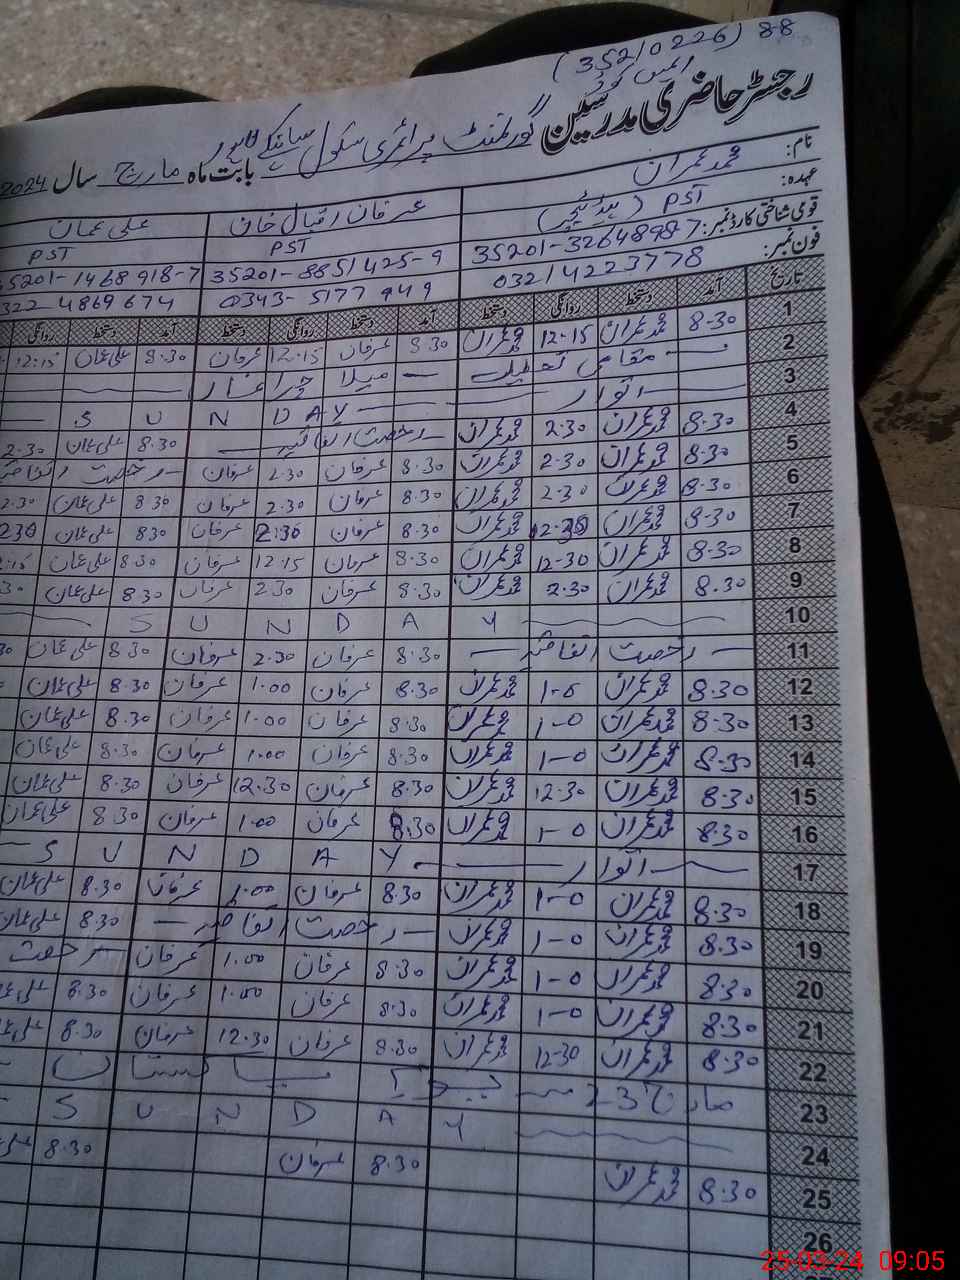 (35210226) 88
رجسٹر حاضری مدرسین گورنمنٹ پرائمری سکول
بابت ماہ مارچ سال 2024
نام: محمد عمران عرفان اقبال خان علی عمان
عہدہ: PST (ہیڈ ٹیچر) PST PST
قومی شناختی کارڈ نمبر: 35201-3264898-7 35201-8851425-9 35201-1468918-7
فون نمبر: 03214223778 0343-5177949 0322-4869674
تاریخ آمد دستخط روانگی دستخط آمد دستخط روانگی دستخط آمد دستخط روانگی
1 8-30 محمد عمران 12-15 محمد عمران 8.30 عرفان 12.15 عرفان 8.30 علی عمان 12:15
2 مقامی تعطیل میلا چراغاں
3 اتوار S U N D A Y
4 8-30 محمد عمران 2.30 محمد عمران رخصت اتفاقیہ 8.30 علی عمان 2.30
5 8-30 محمد عمران 2-30 محمد عمران 8.30 عرفان 2.30 عرفان رخصت اتفاقیہ
6 8-30 محمد عمران 2-30 محمد عمران 8.30 عرفان 2.30 عرفان 8.30 علی عمان 2.30
7 8-30 محمد عمران محمد عمران 8.30 عرفان 2:30 عرفان 8.30 علی عمان 230
8 8-30 محمد عمران 12-30 محمد عمران 8.30 عرفان 12.15 عرفان 8.30 علی عمان
9 8.30 محمد عمران 2.30 محمد عمران 8.30 عرفان 2.30 عرفان 8.30 علی عمان
10 S U N D A Y
11 رخصت اتفاقیہ 8.30 عرفان 2.30 عرفان 8.30 علی عمان
12 8.30 محمد عمران 1-0 محمد عمران 8.30 عرفان 1.00 عرفان 8.30 علی عمان
13 8-30 محمد عمران 1-0 محمد عمران 8.30 عرفان 1.00 عرفان 8.30 علی عمان
14 8-30 محمد عمران 1-0 محمد عمران 8.30 عرفان 1.00 عرفان 8.30 علی عمان
15 8-30 محمد عمران 12-30 محمد عمران 8.30 عرفان 12.30 عرفان 8.30 علی عمان
16 8-30 محمد عمران 1-0 محمد عمران 8.30 عرفان 1.00 عرفان 8.30 علی عمان
17 اتوار S U N D A Y
18 8-30 محمد عمران 1-0 محمد عمران 8.30 عرفان 1.00 عرفان 8.30 علی عمان
19 8.30 محمد عمران 1-0 محمد عمران رخصت اتفاقیہ 8.30 علی عمان
20 8-30 محمد عمران 1-0 محمد عمران 8.30 عرفان 1.00 عرفان رخصت
21 8-30 محمد عمران 1-0 محمد عمران 8.30 عرفان 1.00 عرفان 8.30 علی عمان
22 8-30 محمد عمران 12-30 محمد عمران 8.30 عرفان 12.30 عرفان 8.30 علی عمان
23 23 مارچ یوم پاکستان
24 S U N D A Y
25 8-30 محمد عمران 8.30 عرفان 8.30
26
25-03-24 09:05